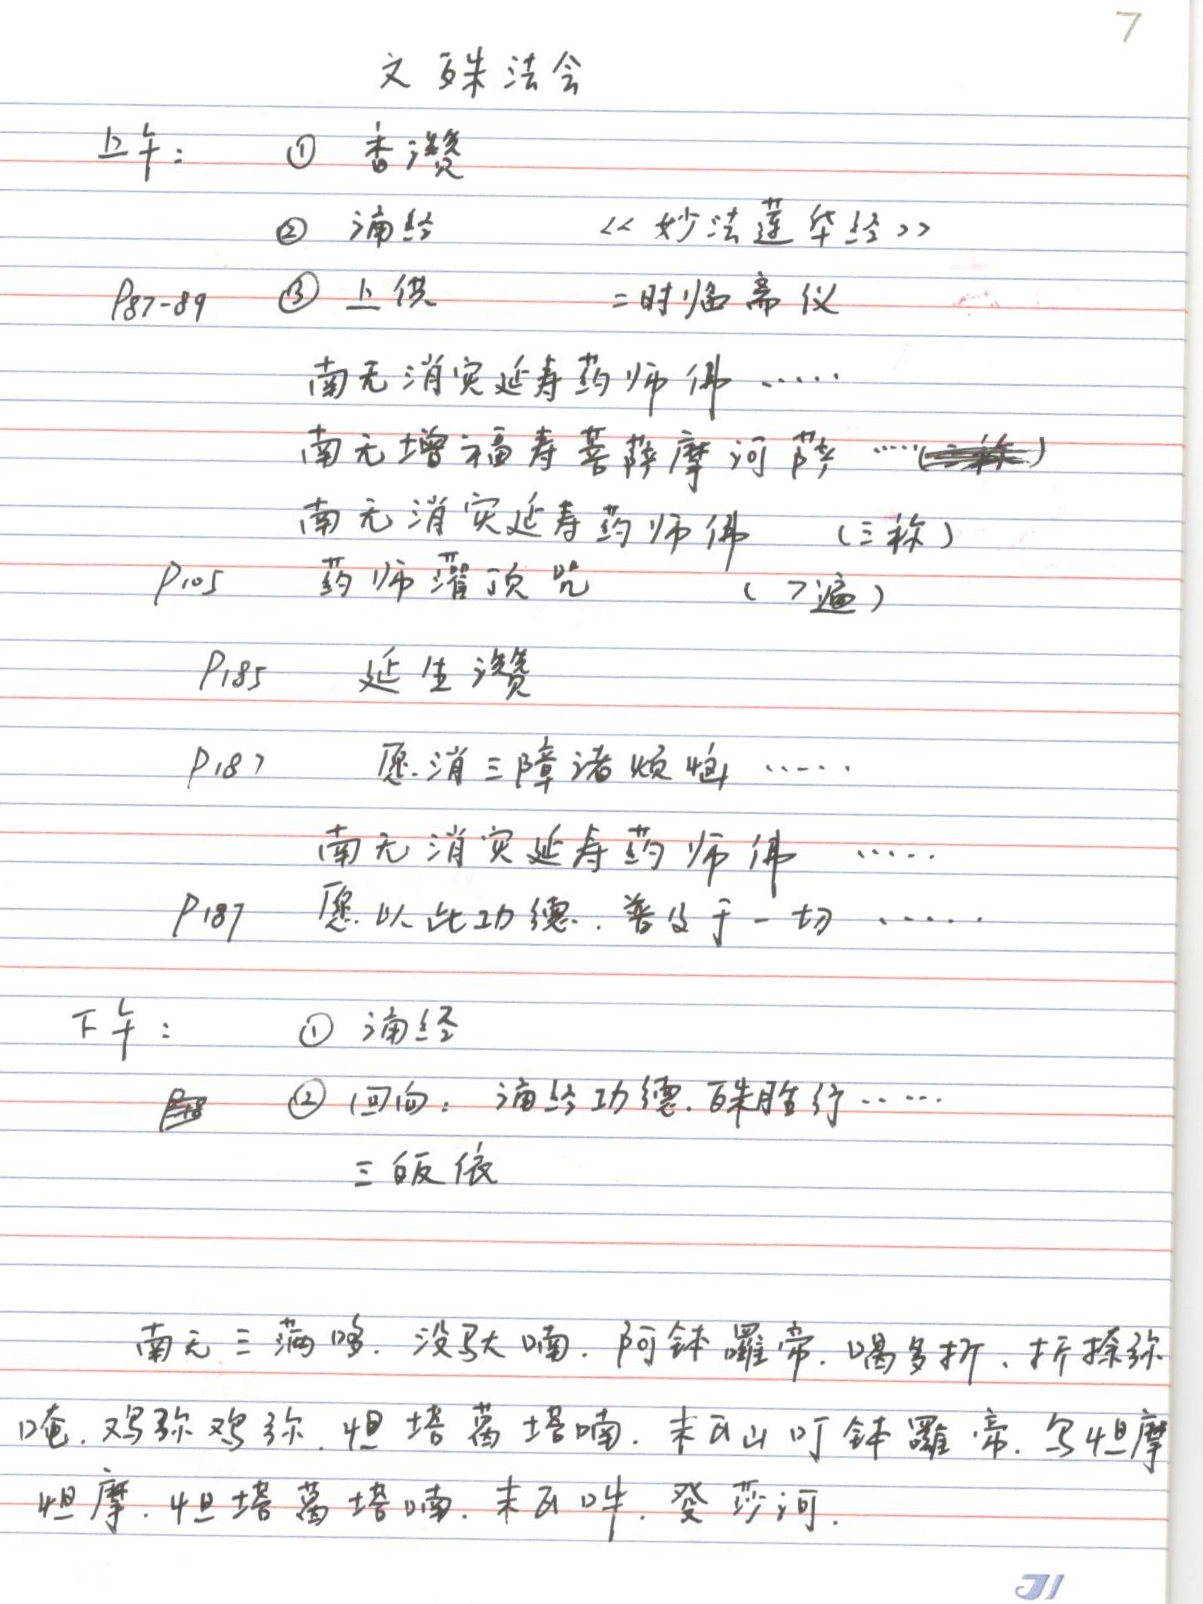 7
文殊法会
上午： ① 香讚
② 诵经 《妙法莲华经》
P87-89 ③ 上供 二时临斋仪
南无消灾延寿药师佛 ……
南无增福寿菩萨摩诃萨 ……
南无消灾延寿药师佛 （三称）
P105 药师灌顶咒 （7遍）
P185 延生讚
P187 愿消三障诸烦恼 ……
南无消灾延寿药师佛 ……
P187 愿以此功德．普及于一切 ……
下午： ① 诵经
② 回向：诵经功德．殊胜行……
三皈依
南无三满哆．没驮喃．阿钵囉帝．喝多折．折捺弥
唵．鸡弥鸡弥．怛塔葛塔喃．末瓦山叮钵囉帝．乌怛摩
怛摩．怛塔葛塔喃．末瓦吽．癹莎诃．